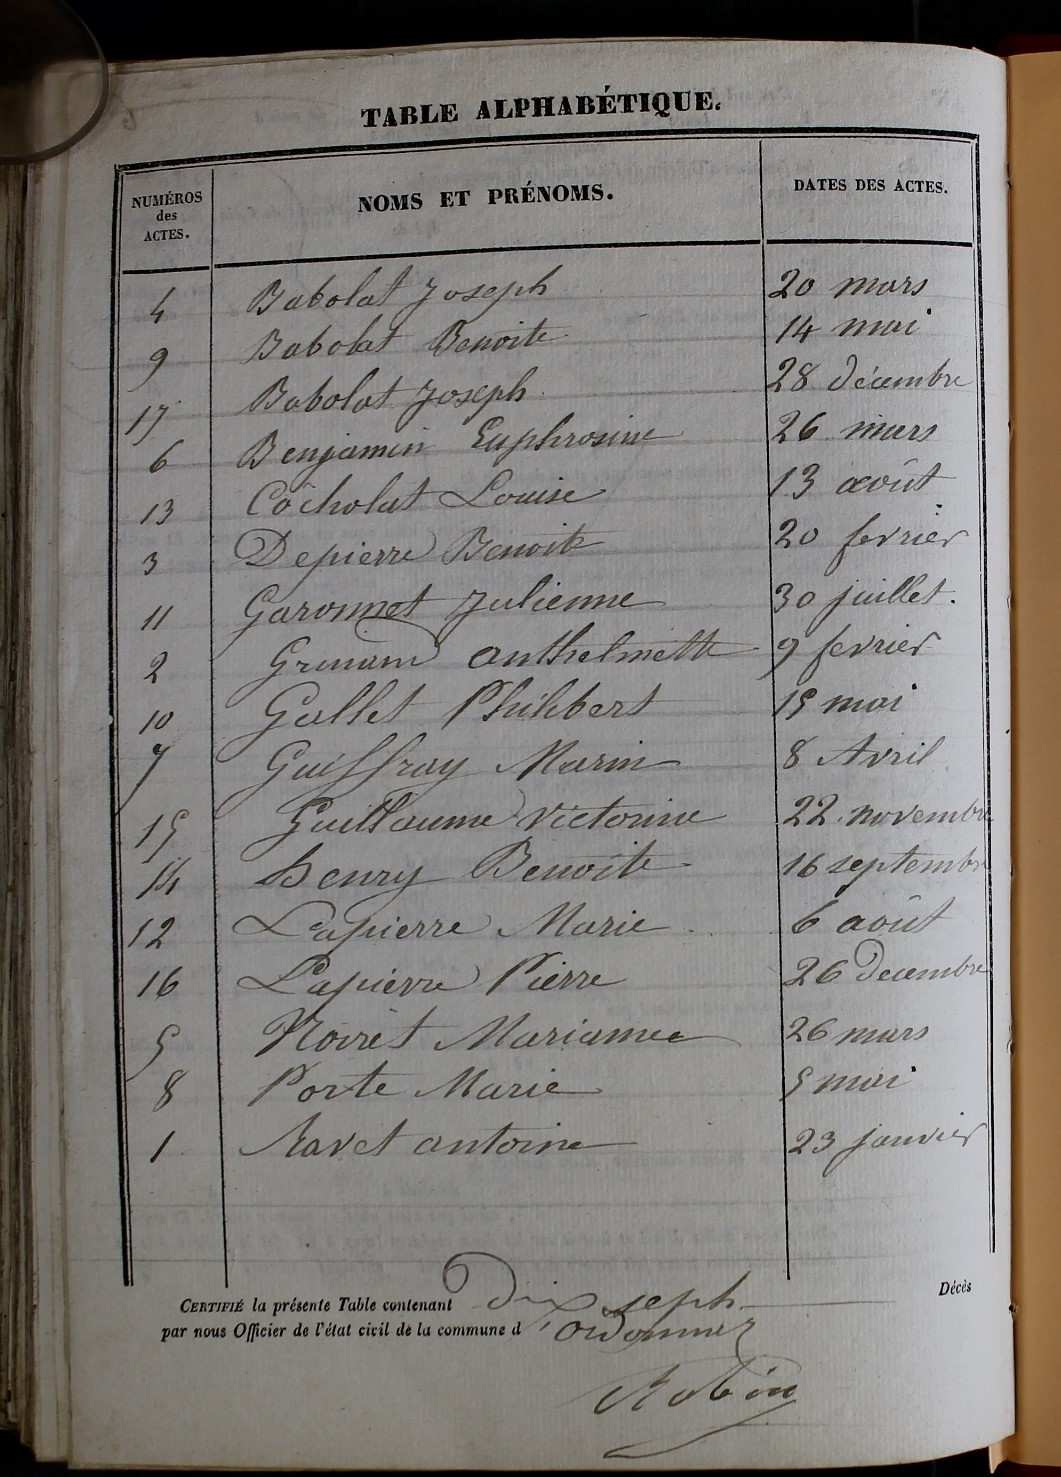 TABLE ALPHABÉTIQUE.
NUMÉROS des ACTES. NOMS ET PRÉNOMS. DATES DES ACTES.
4 Babolat Joseph 20 mars
9 Babolat Benoite 14 mai
17 Babolat Joseph 28 décembre
6 Benjamin Euphrosine 26 mars
13 Cocholat Louise 13 août
3 Depierre Benoit 20 fevrier
11 Garonnet Julienne 30 juillet.
2 anthelmette 9 fevrier
10 Gallet Philibert 15 mai
7 Guiffray Marin 8 Avril
15 Guillaume victorine 22 novembre
14 henry Benoite 16 septembre
12 Lapierre Marie 6 août
16 Lapierre Pierre 26 decembre
5 Noiret Mariannee 26 mars
8 Porte Marie 5 mai
1 Ravet antoine 23 janvier
CERTIFIÉ la présente Table contenant Dix seph Décès
par nous Officier de l'état civil de la commune d'ordonnaz
Robin